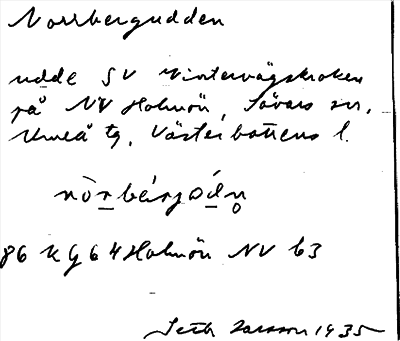 Norrbergudden
udde SV Vintervägskroken
på NV Holmön, Sävars sn,
Umeå tg, Västerbottens l.
nò̱rbérjɷ́ḏn̥
86 Kg 64 Holmön NV b3
Seth Larsson 1935